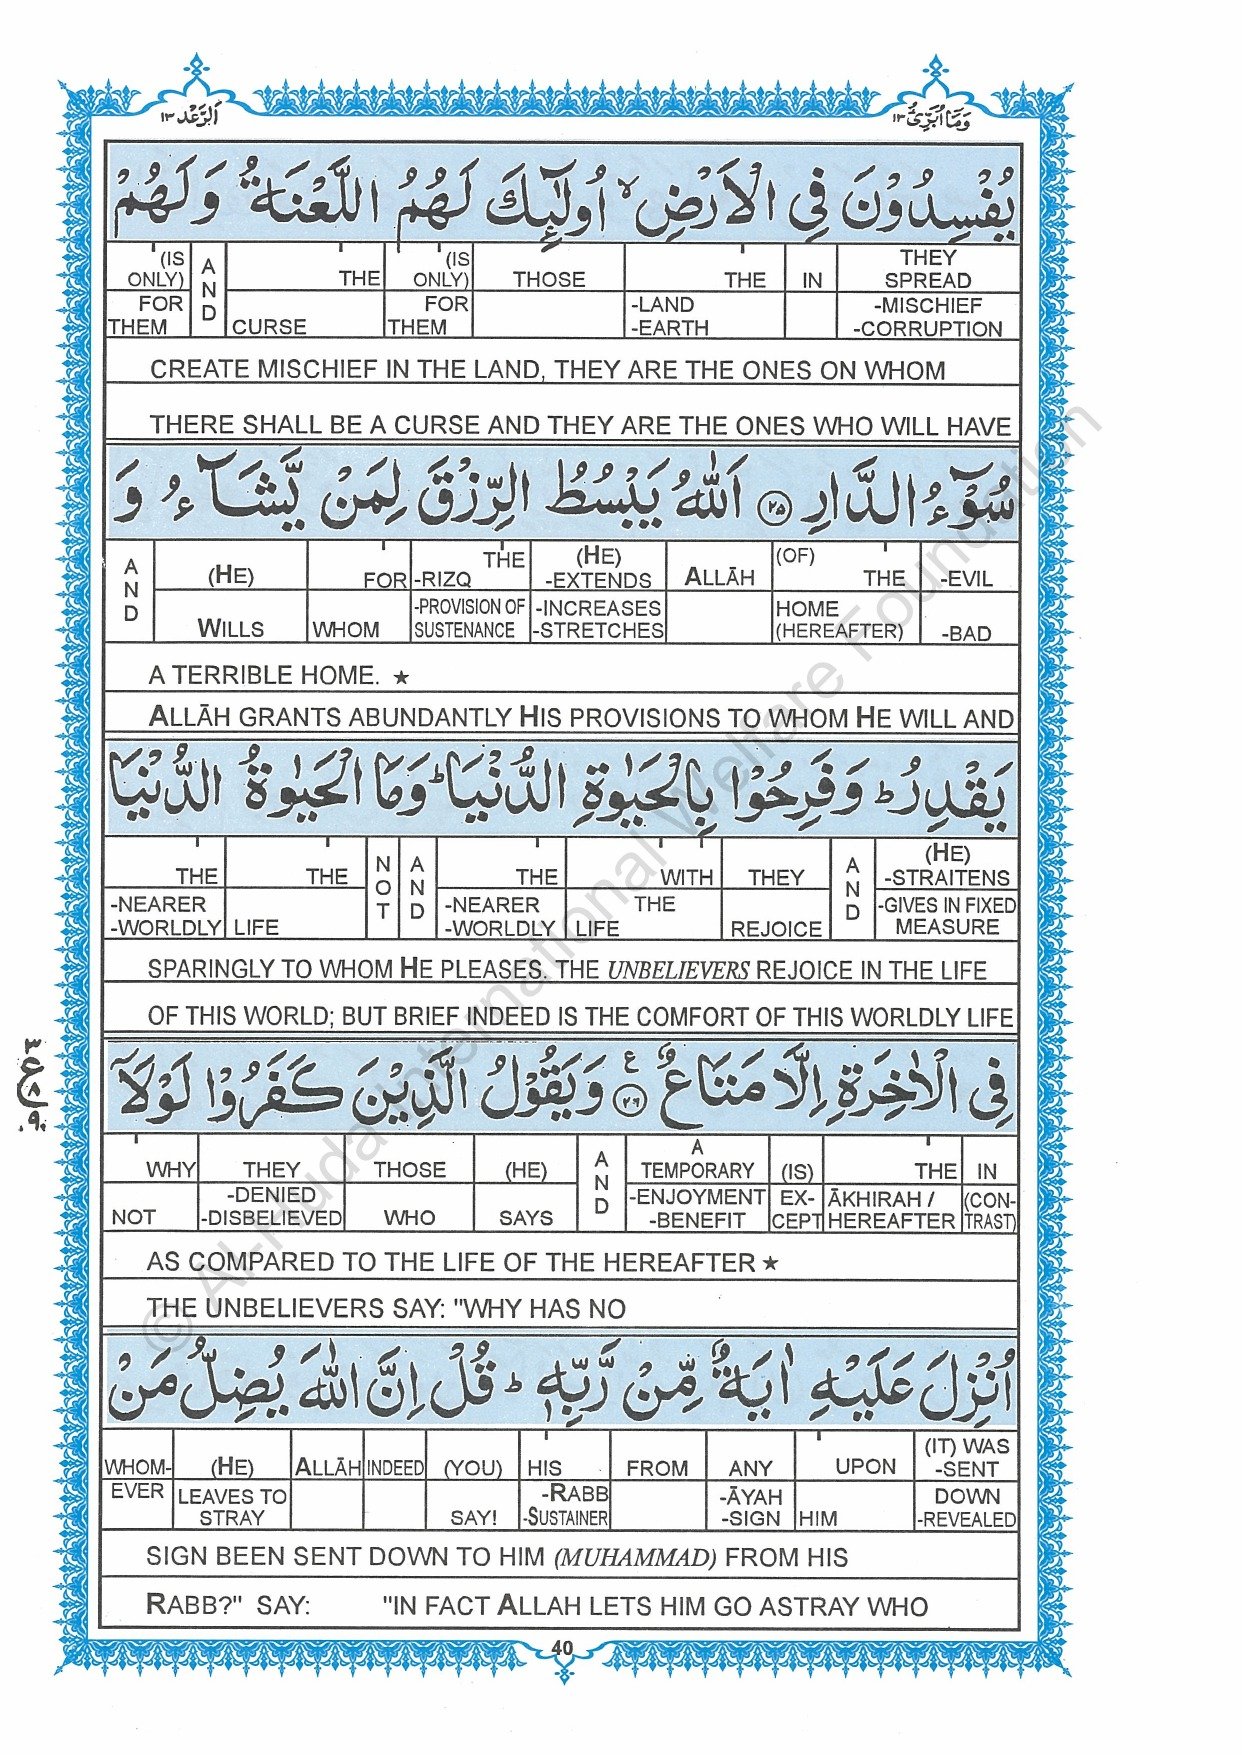 وَمَآ اُبَرِّئُ ۱۳
اَلرَّعْد ۱۳
يُفْسِدُوْنَ فِي الْاَرْضِ ۙ اُولٰٓئِكَ لَهُمُ اللَّعْنَةُ وَلَهُمْ
THEY SPREAD IN THE THOSE (IS ONLY) THE AND (IS ONLY)
-MISCHIEF -CORRUPTION -LAND -EARTH FOR THEM CURSE FOR THEM
CREATE MISCHIEF IN THE LAND, THEY ARE THE ONES ON WHOM
THERE SHALL BE A CURSE AND THEY ARE THE ONES WHO WILL HAVE
سُوْٓءُ الدَّارِ ۲۵ اَللّٰهُ يَبْسُطُ الرِّزْقَ لِمَنْ يَّشَآءُ وَ
-EVIL THE (OF) ALLĀH (HE) -EXTENDS THE -RIZQ FOR (HE) AND
-BAD HOME (HEREAFTER) -INCREASES -STRETCHES -PROVISION OF SUSTENANCE WHOM WILLS
A TERRIBLE HOME. ★
ALLĀH GRANTS ABUNDANTLY HIS PROVISIONS TO WHOM HE WILL AND
يَقْدِرُ ؕ وَفَرِحُوْا بِالْحَيٰوةِ الدُّنْيَا ؕ وَمَا الْحَيٰوةُ الدُّنْيَا
(HE) -STRAITENS AND THEY WITH THE AND NOT THE THE
-GIVES IN FIXED MEASURE REJOICE THE LIFE -NEARER -WORLDLY LIFE -NEARER -WORLDLY
SPARINGLY TO WHOM HE PLEASES. THE UNBELIEVERS REJOICE IN THE LIFE
OF THIS WORLD; BUT BRIEF INDEED IS THE COMFORT OF THIS WORLDLY LIFE
فِي الْاٰخِرَةِ اِلَّا مَتَاعٌ ۲۶ ع وَيَقُوْلُ الَّذِيْنَ كَفَرُوْا لَوْلَآ
IN THE (IS) A TEMPORARY AND (HE) THOSE THEY WHY
(CON-TRAST) ĀKHIRAH / HEREAFTER EX-CEPT -ENJOYMENT -BENEFIT SAYS WHO -DENIED -DISBELIEVED NOT
AS COMPARED TO THE LIFE OF THE HEREAFTER ★
THE UNBELIEVERS SAY: "WHY HAS NO
اُنْزِلَ عَلَيْهِ اٰيَةٌ مِّنْ رَّبِّهٖ ؕ قُلْ اِنَّ اللّٰهَ يُضِلُّ مَنْ
(IT) WAS -SENT UPON ANY FROM HIS (YOU) INDEED ALLĀH (HE) WHOM-
DOWN -REVEALED HIM -ĀYAH -SIGN -RABB -SUSTAINER SAY! LEAVES TO STRAY EVER
SIGN BEEN SENT DOWN TO HIM (MUHAMMAD) FROM HIS
RABB?" SAY: "IN FACT ALLAH LETS HIM GO ASTRAY WHO
40
© Al-Huda International Welfare Foundation